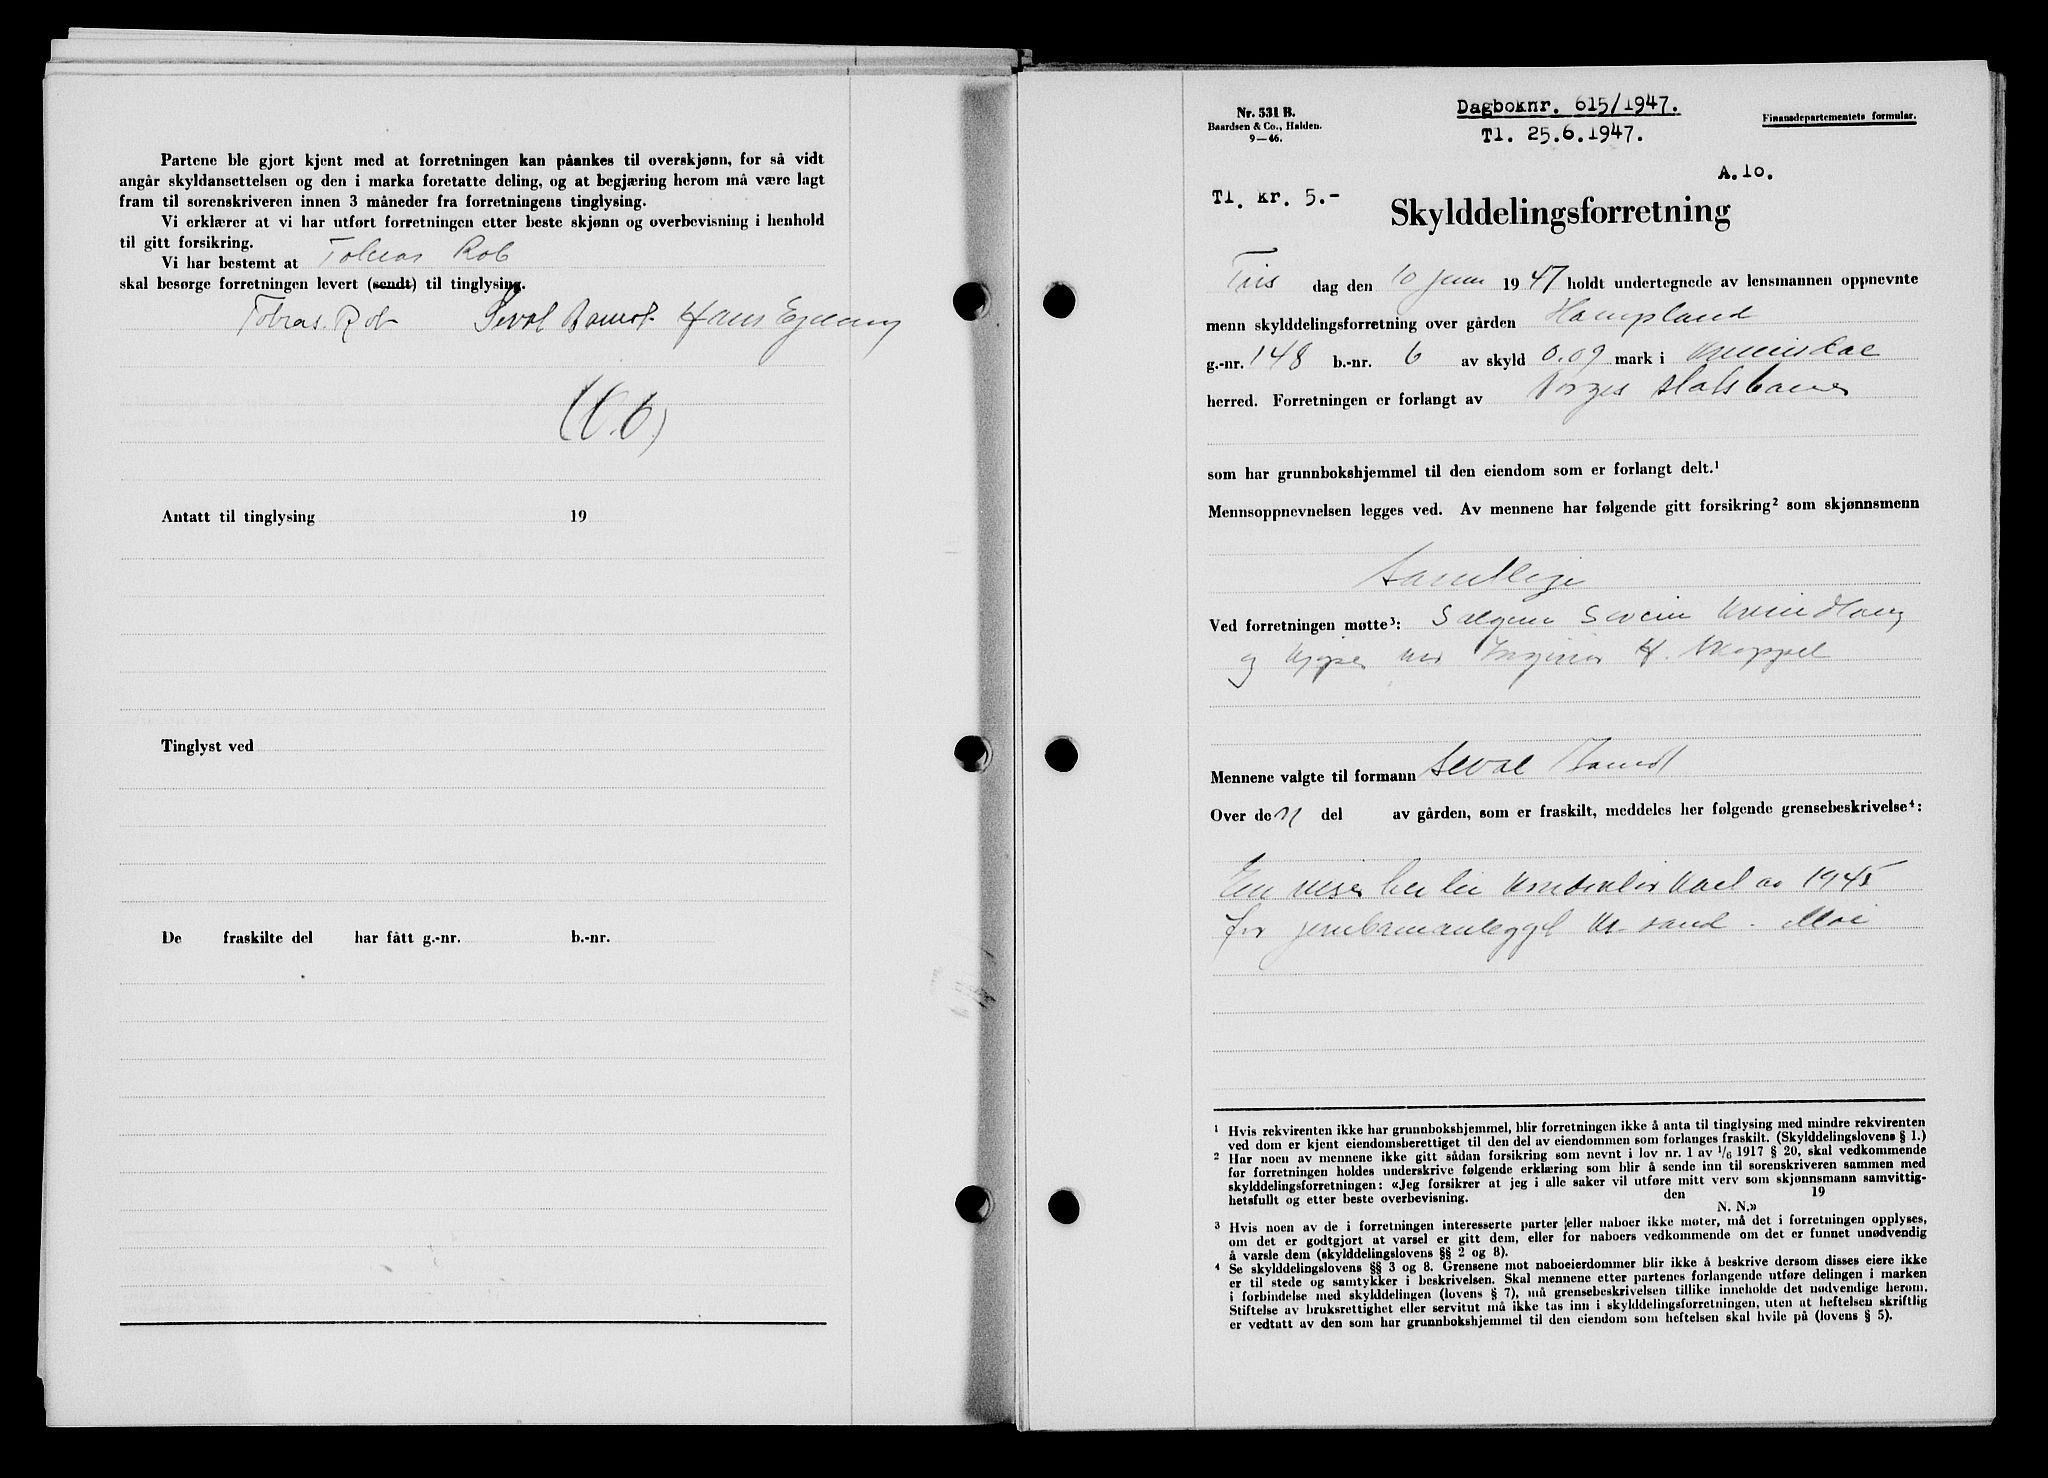 Partene ble gjort kjent med at forretningen kan påankes til overskjønn, for så vidt
angår skyldansettelsen og den i marka foretatte deling, og at begjæring herom må være lagt
fram til sorenskriveren innen 3 måneder fra forretningens tinglysing.
Vi erklærer at vi har utført forretningen etter beste skjønn og overbevisning i henhold
til gitt forsikring.
Vi har bestemt at Tobias Rob
skal besørge forretningen levert (sendt) til tinglysing.
Tobias Rob Seval Hans
Antatt til tinglysing 19
Tinglyst ved
De fraskilte del har fått g.-nr. b.-nr.
Nr. 531 B.
Baardsen & Co., Halden.
9—46.
Dagboknr. 615/1947.
Tl. 25.6.1947.
Finansdepartementets formular.
A.10.
Tl. kr. 5.-
Skylddelingsforretning
Tirs dag den 10 juni 1947 holdt undertegnede av lensmannen oppnevnte
menn skylddelingsforretning over gården Hompland
g.-nr. 148 b.-nr. 6 av skyld 0.09 mark i Kvinesdal
herred. Forretningen er forlangt av Norges Statsbaner
som har grunnbokshjemmel til den eiendom som er forlangt delt.¹
Mennsoppnevnelsen legges ved. Av mennene har følgende gitt forsikring² som skjønnsmenn
Samtlige
Ved forretningen møtte³: Selgeren
og kjøper ved Ingeniør H.
Mennene valgte til formann Seval
Over den del av gården, som er fraskilt, meddeles her følgende grensebeskrivelse⁴:
En viser her til av 1945
for jernbaneanlegget Kr.sand - Moi
¹ Hvis rekvirenten ikke har grunnbokshjemmel, blir forretningen ikke å anta til tinglysing med mindre rekvirenten
ved dom er kjent eiendomsberettiget til den del av eiendommen som forlanges fraskilt. (Skylddelingslovens § 1.)
² Har noen av mennene ikke gitt sådan forsikring som nevnt i lov nr. 1 av 1/6 1917 § 20, skal vedkommende
før forretningen holdes underskrive følgende erklæring som blir å sende inn til sorenskriveren sammen med
skylddelingsforretningen: «Jeg forsikrer at jeg i alle saker vil utføre mitt verv som skjønnsmann samvittig-
hetsfullt og etter beste overbevisning. den 19
N. N.»
³ Hvis noen av de i forretningen interesserte parter eller naboer ikke møter, må det i forretningen opplyses,
om det er godtgjort at varsel er gitt dem, eller for naboers vedkommende om det er funnet unødvendig
å varsle dem (skylddelingslovens §§ 2 og 8).
⁴ Se skylddelingslovens §§ 3 og 8. Grensene mot naboeierdommer blir ikke å beskrive dersom disses eiere ikke
er til stede og samtykker i beskrivelsen. Skal mennene etter partenes forlangende utføre delingen i marken
i forbindelse med skylddelingen (lovens § 7), må grensebeskrivelsen tillike inneholde det nødvendige herom.
Stiftelse av bruksrettighet eller servitut må ikke tas inn i skylddelingsforretningen, uten at heftelsen skriftlig
er vedtatt av den som har grunnbokshjemmel til den eiendom som heftelsen skal hvile på (lovens § 5).